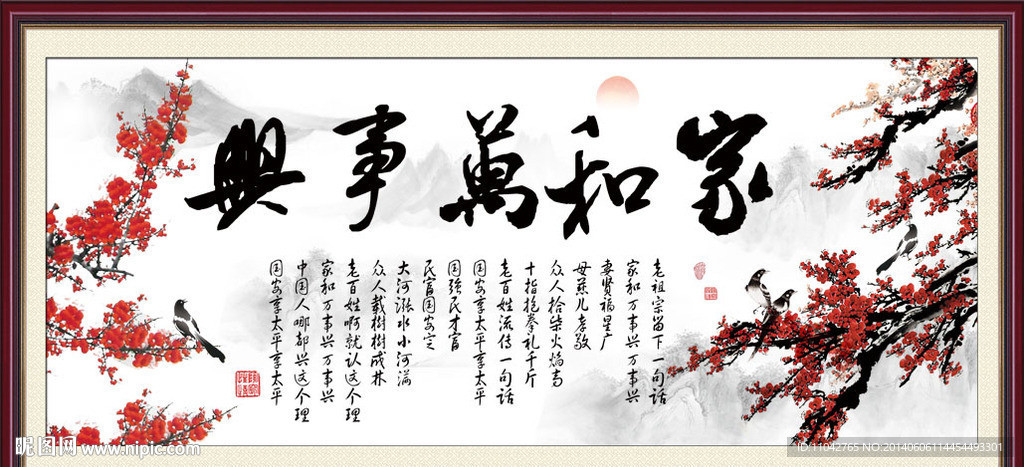 家和萬事興
老祖宗留下一句话
家和万事兴万事兴
妻贤福星广
母慈儿孝敬
众人拾柴火焰高
十指抱拳礼千斤
老百姓流传一句话
国安享太平享太平
国强民才富
民富国安定
大河涨水小河满
众人载樹樹成林
老百姓啊就认这个理
家和万事兴万事兴
中国人哪都兴这个理
国安享太平享太平
昵图网 www.nipic.com
ID:11042765 NO.20140606114454493301